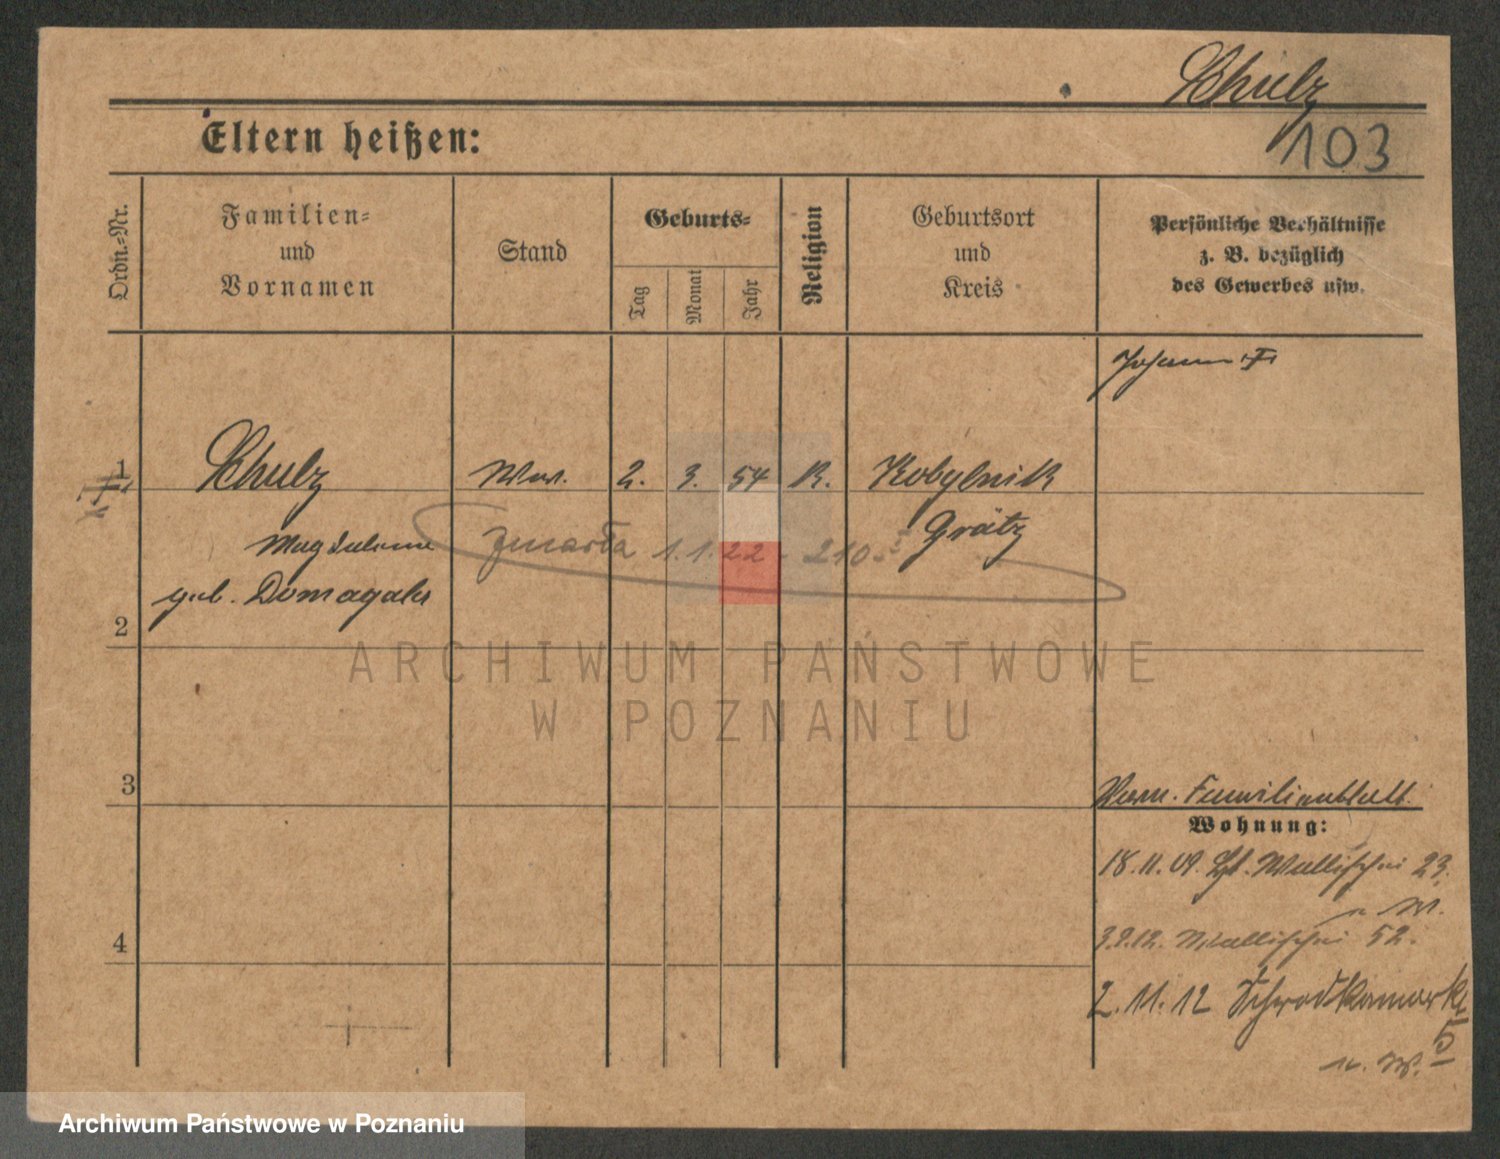 Schulz
103
Eltern heißen:
Ordn.=Nr.
Familien=
und
Vornamen
Stand
Geburts=
Tag
Monat
Jahr
Religion
Geburtsort
und
Kreis
Persönliche Verhältnisse
z. B. bezüglich
des Gewerbes usw.
Johann
1
Schulz
Ww.
2.
3.
54
K.
Kobylnik
Grätz
Magdalena
zmarła 1.1.22 - 210
geb. Domagala
2
3
4
Familienblatt
Wohnung:
18.11.09. Wallischei 23.
3.2.12. Wallischei 52.
2.11.12 Schrodkamarkt
5
ARCHIWUM PAŃSTWOWE
W POZNANIU
Archiwum Państwowe w Poznaniu